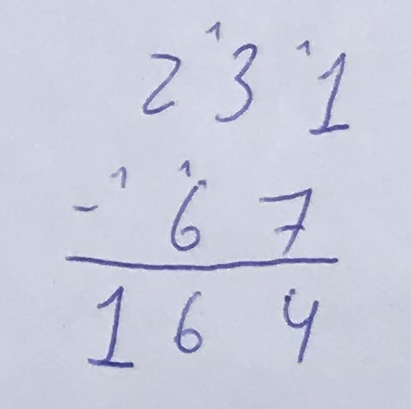 2 ¹3 ¹1
- ¹ ¹6 7
1 6 4